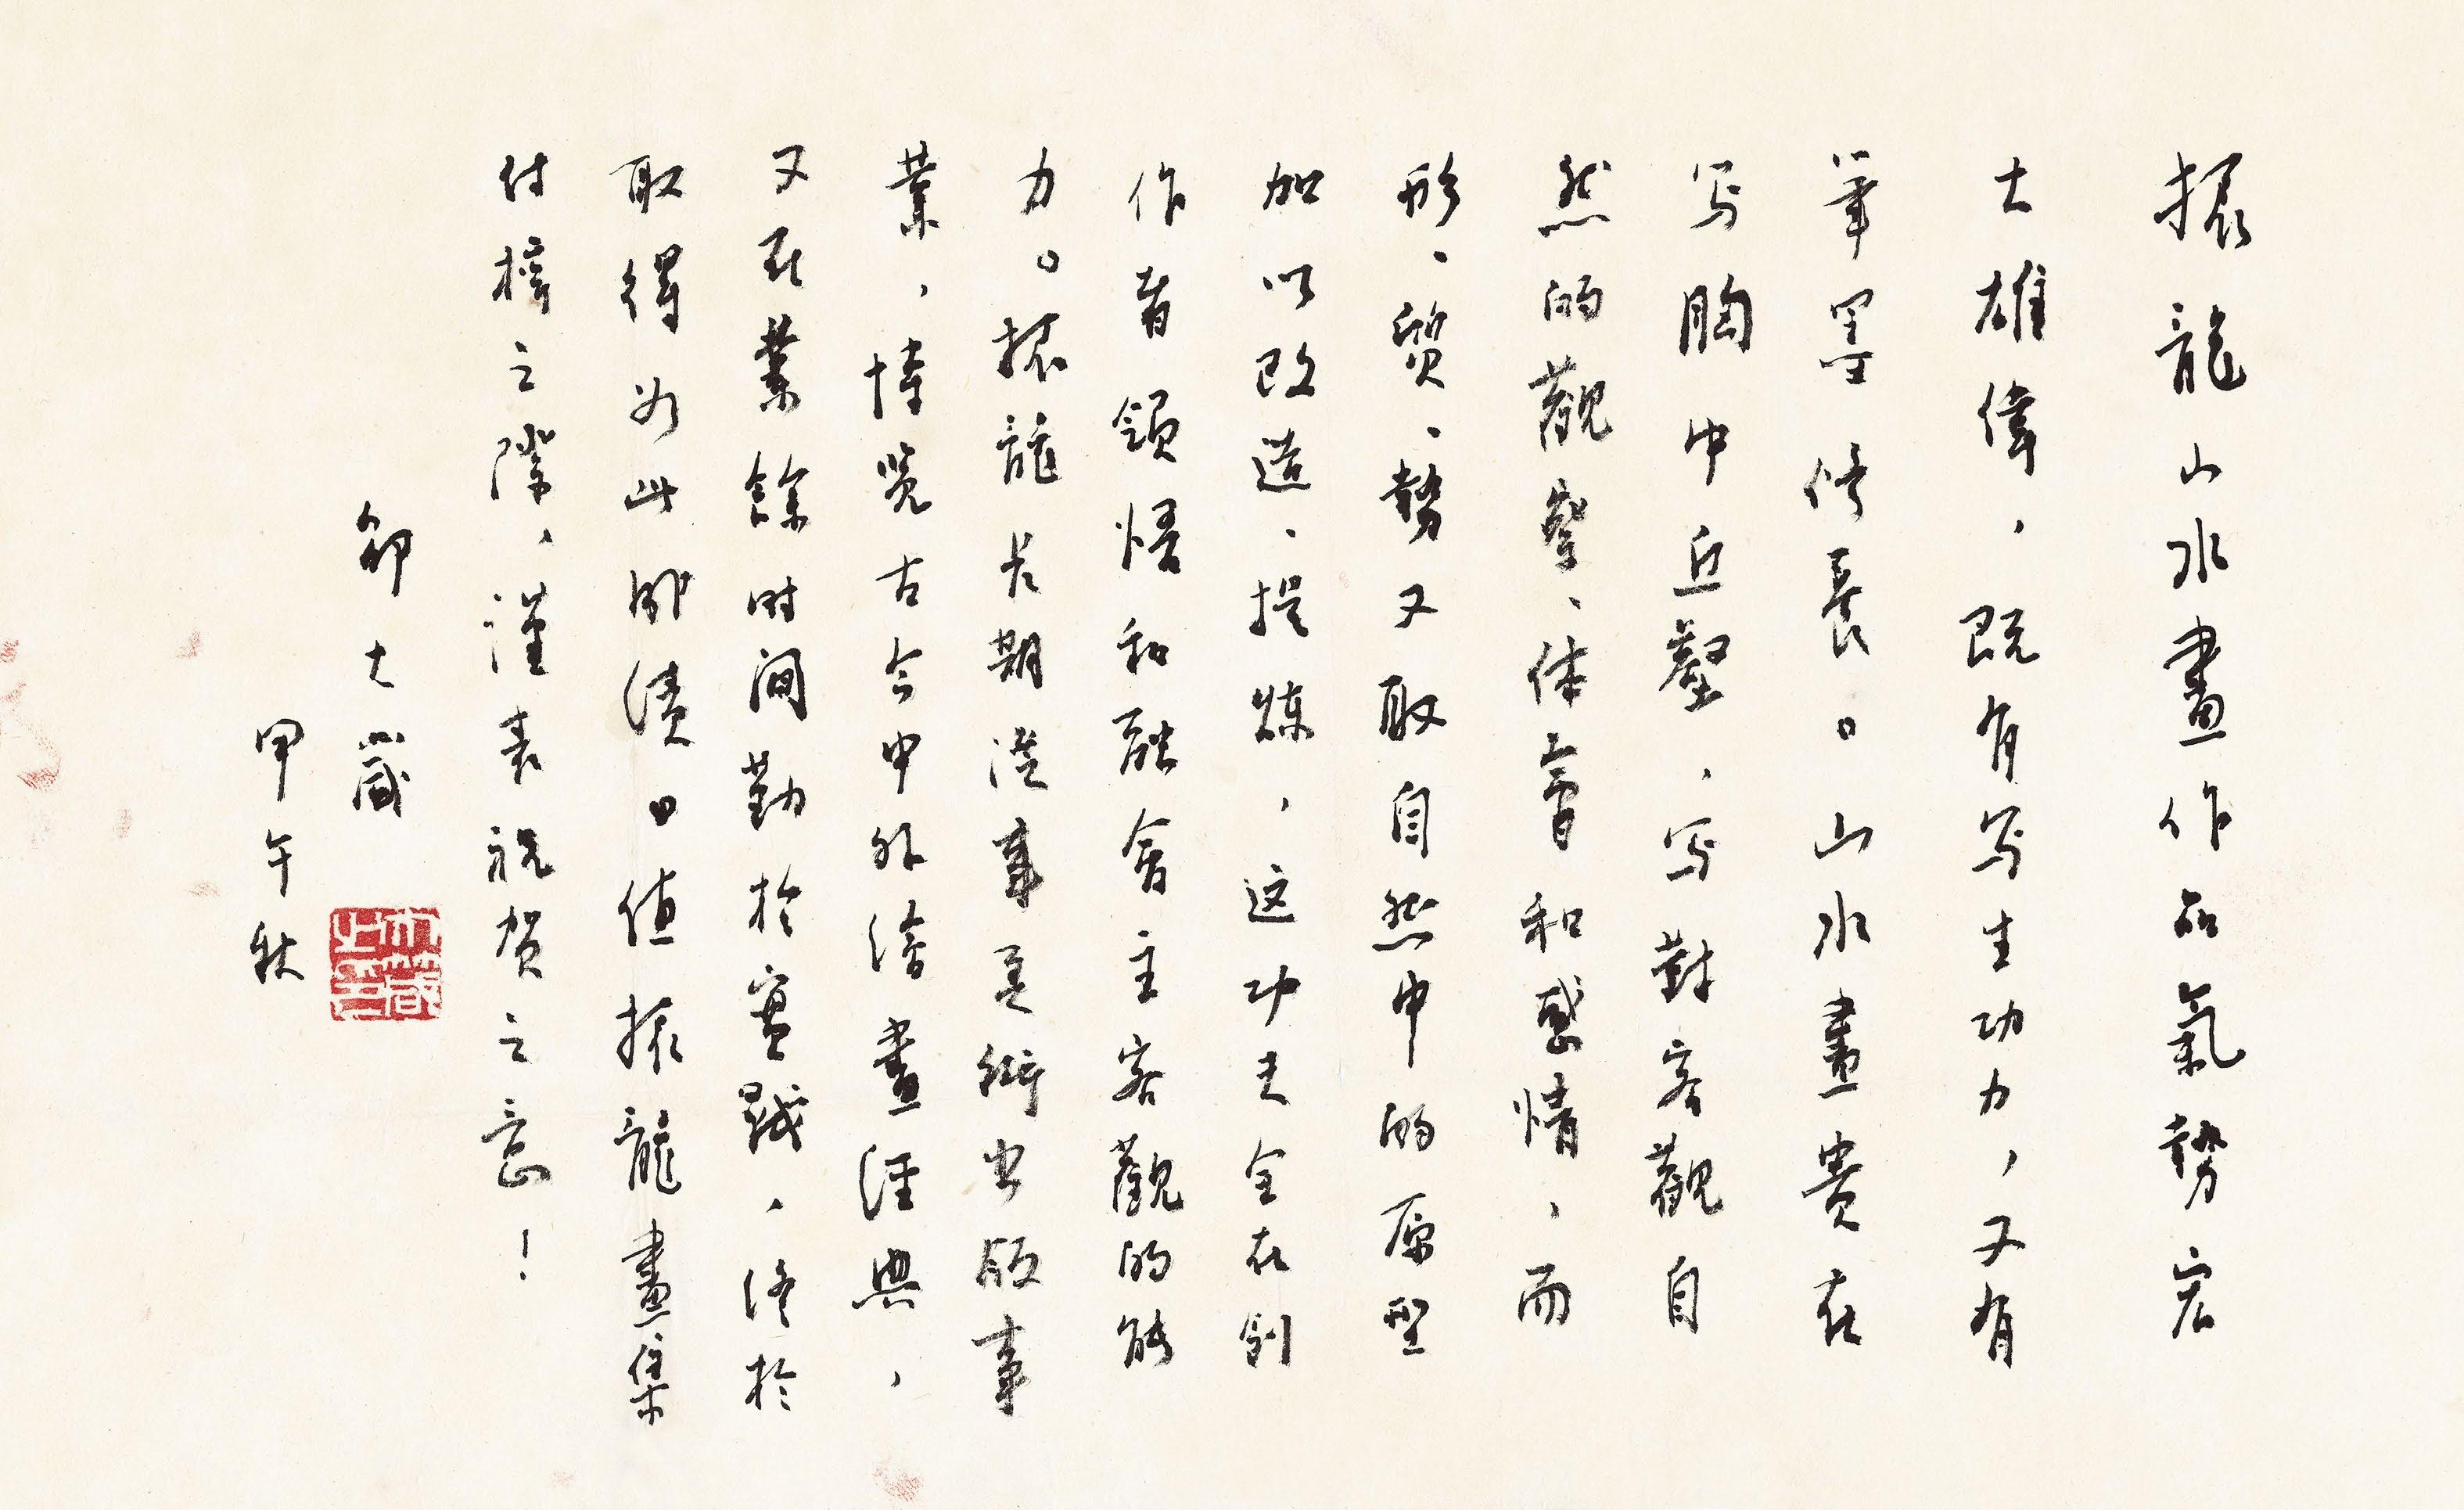 振龍山水畫作品氣勢宏
大雄偉，既有写生功力，又有
筆墨修養。山水畫贵在
写胸中丘壑，写對客觀自
然的觀察、体會和感情，而
形、貭、勢又取自然中的原型
加以改造、提煉，这功夫全在創
作者領悟和融會主客觀的能
力。振龍长期從事美術出版事
業，博览古今中外绘畫经典，
又在業餘时间勤於實踐，终於
取得如此成績。值振龍畫集
付梓之際，谨表祝贺之意！
邵大箴
甲午秋
大箴之印